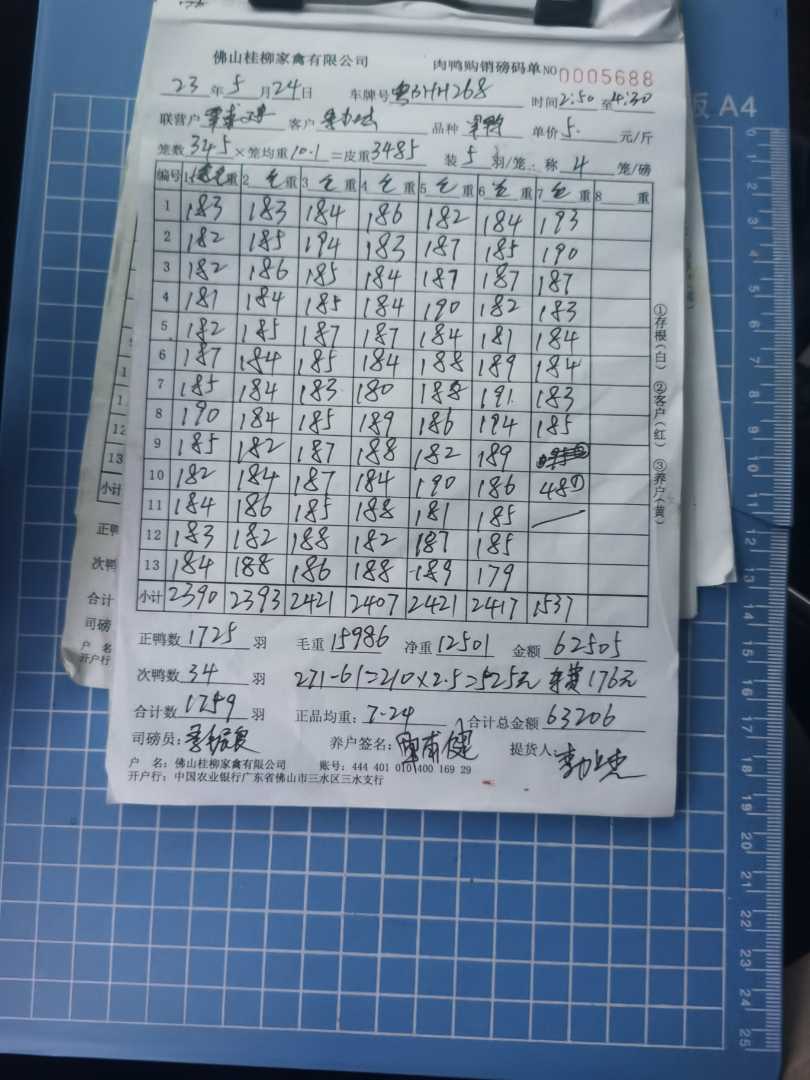 佛山桂柳家禽有限公司 肉鸭购销磅码单 NO 0005688
23 年 5 月 24 日 车牌号 粤BHH268 时间 2:50 至 4:30
联营户 客户 品种 单价 5. 元/斤
笼数 345 × 笼均重 10.1 = 皮重 3485 装 5 羽/笼; 称 4 笼/磅
编号 1 毛重 2 毛重 3 毛重 4 毛重 5 毛重 6 毛重 7 毛重 8 重
1 183 183 184 186 182 184 193
2 182 185 194 183 187 185 190
3 182 186 185 184 187 187 187
4 181 184 185 184 190 182 183
5 182 185 187 187 184 181 184
6 187 184 185 184 188 189 184
7 185 184 183 180 188 191 183
8 190 184 185 189 186 194 185
9 185 182 187 188 182 189
10 182 184 187 184 190 186 48①
11 184 186 185 188 181 185
12 183 182 188 182 187 185
13 184 188 186 188 189 179
小计 2390 2393 2421 2407 2421 2417 1537
①存根(白) ②客户(红) ③养户(黄)
正鸭数 1725 羽 毛重 15986 净重 12501 金额 62505
次鸭数 34 羽 271-61=210×2.5=525元 车费176元
合计数 1759 羽 正品均重: 7.24 合计总金额 63206
司磅员: 养户签名: 提货人:
户 名: 佛山桂柳家禽有限公司 账号: 444 401 010 400 169 29
开户行: 中国农业银行广东省佛山市三水区三水支行
12
13
小计
正鸭
次鸭
合计
司磅
户 名
开户行
板 A4
0
1
2
3
4
5
6
7
8
9
10
11
12
13
14
15
16
17
18
19
20
21
22
23
24
25